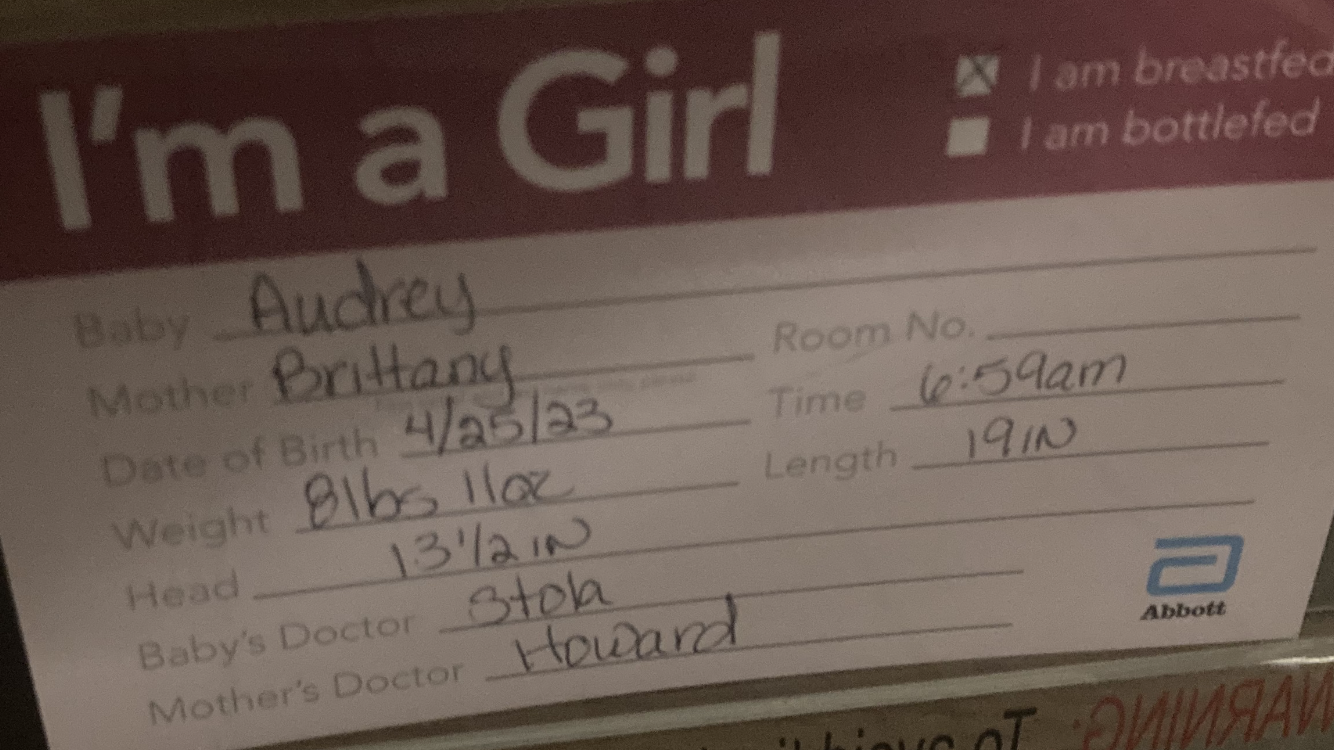 I'm a Girl
I am breastfed
I am bottlefed
Baby Audrey
Mother Brittany
Room No.
Date of Birth 4/25/23
Time 6:59am
Weight 8lbs 11oz
Length 19 IN
Head 13 1/2 IN
Baby's Doctor Stola
Mother's Doctor Howard
Abbott
WARNING: